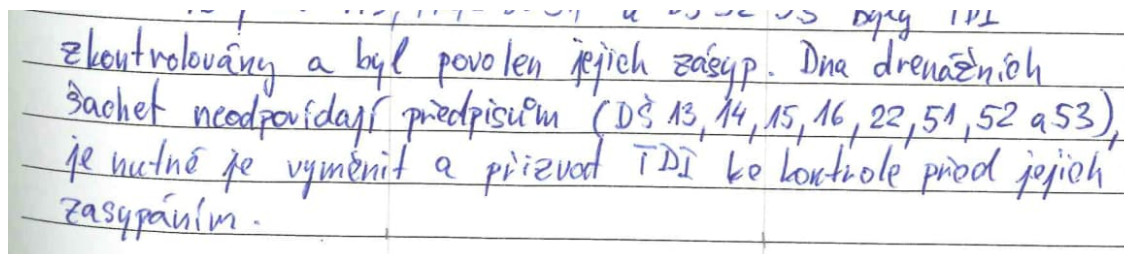 byly TDI
zkontrolovány a byl povolen jejich zásyp. Dna drenážních
šachet neodpovídají předpisům (DŠ 13, 14, 15, 16, 22, 51, 52 a 53),
je nutné je vyměnit a přizvat TDI ke kontrole před jejich
zasypáním.